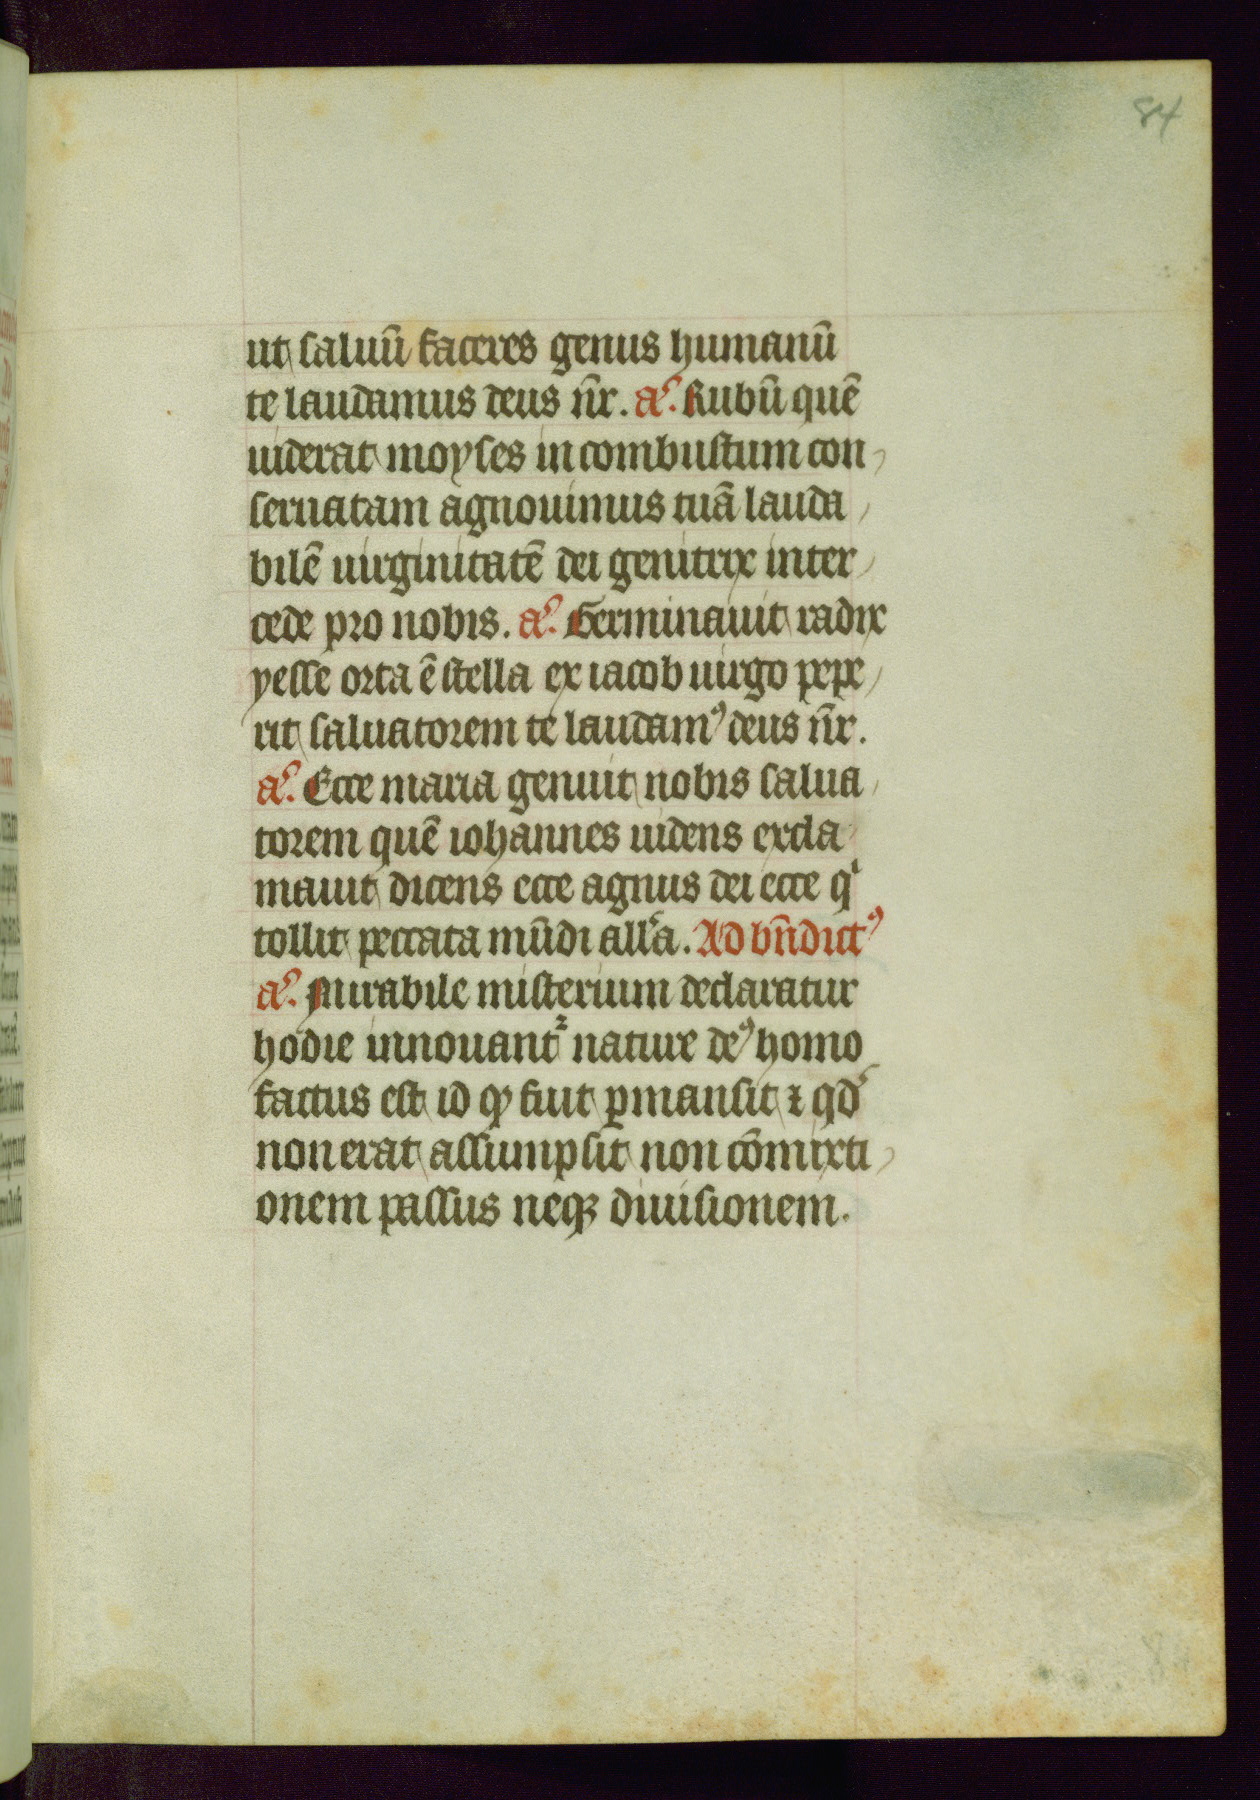 84
ut saluū faceres genus humanū
te laudamus deus nr̄. a͛. Rubū quē
uiderat moyses incombustum con
seruatam agnouimus tuā lauda
bilē uirginitatē dei genitrix inter
cede pro nobis. a͛. Germinauit radix
yesse orta ē stella ex iacob uirgo pepe
rit saluatorem te laudamꝰ deus nr̄.
a͛. Ecce maria genuit nobis salua
torem quē iohannes uidens excla
mauit dicens ecce agnus dei ecce qⁱ
tollit peccata mūdi all͛a. Ad bn̄dictꝰ
a͛. Mirabile misterium declaratur
hodie innouant᷑ nature deꝰ homo
factus est id ꝙ fuit ꝑmansit ⁊ qd͛
non erat assumpsit non cōmixti
onem passus neqꝫ diuisionem.